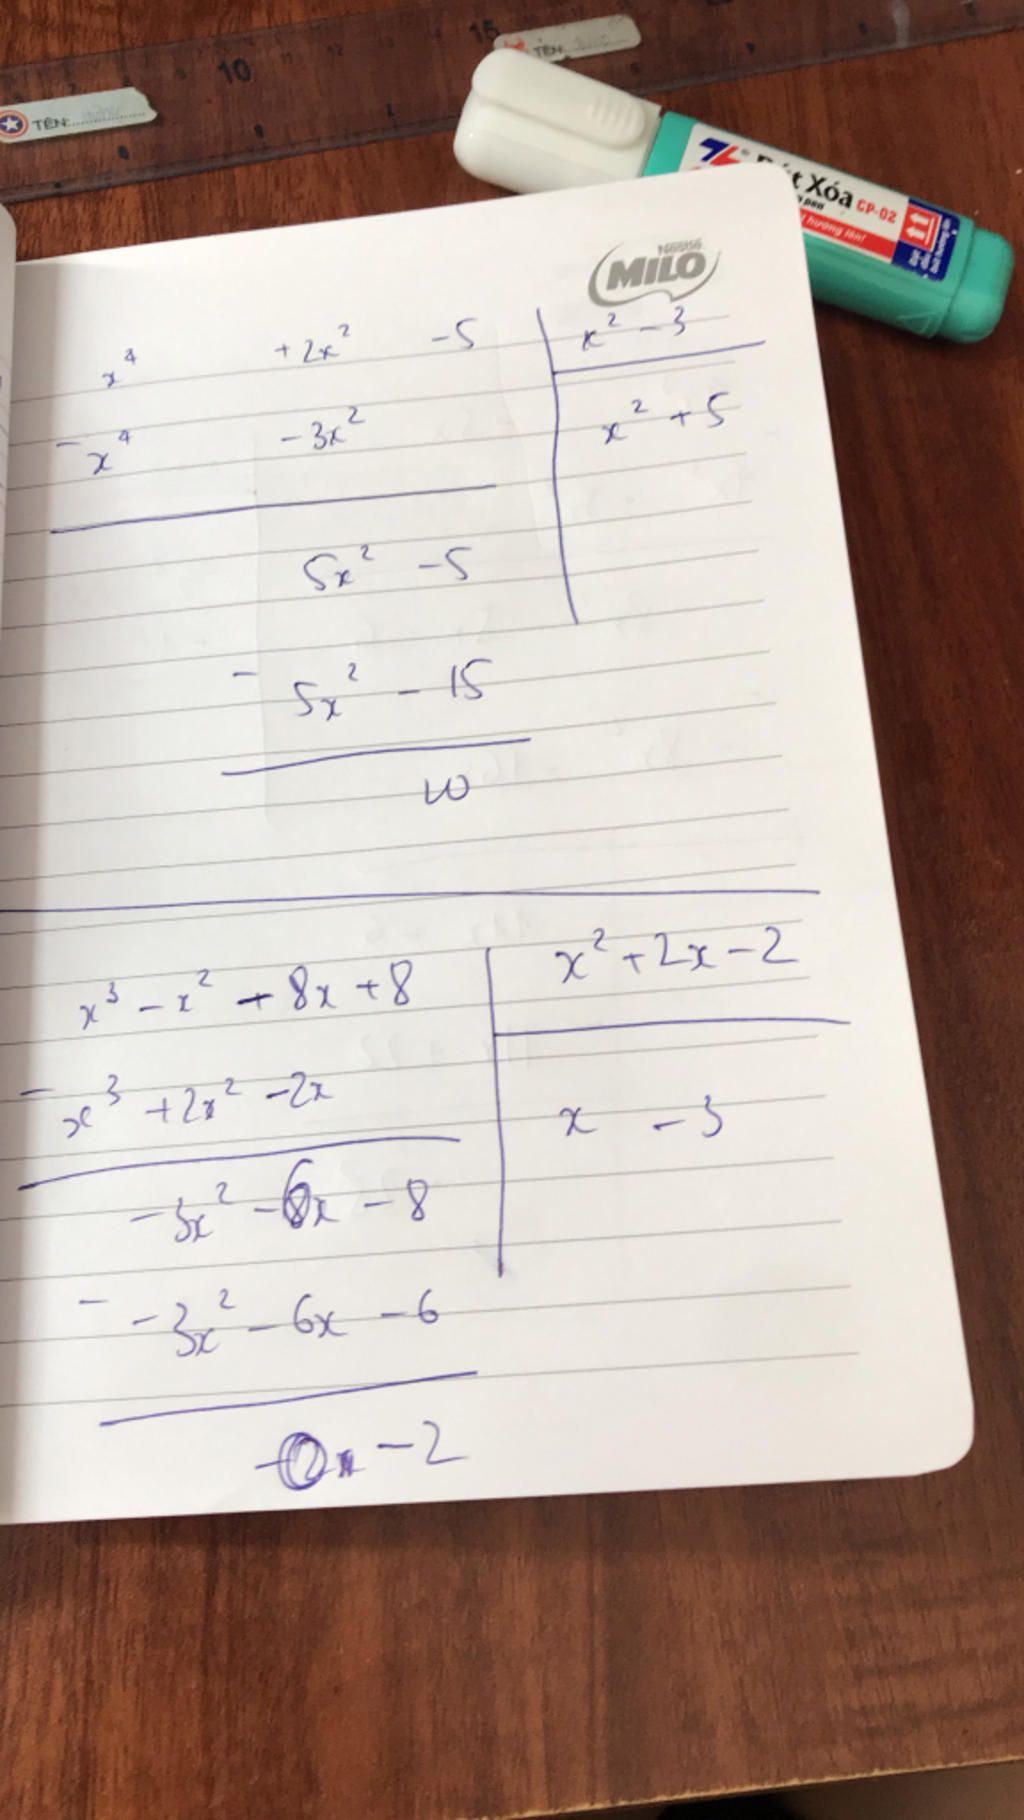 10
15
TÊN:
TÊN:
Bút Xóa CP-02
hướng lên!
Nestlé
MILO
x⁴ + 2x² - 5
x² - 3
- x⁴ - 3x²
x² + 5
5x² - 5
- 5x² - 15
10
x³ - x² - 8x + 8
x² + 2x - 2
- x³ + 2x² - 2x
x - 3
- 3x² - 6x - 8
- - 3x² - 6x - 6
- 2